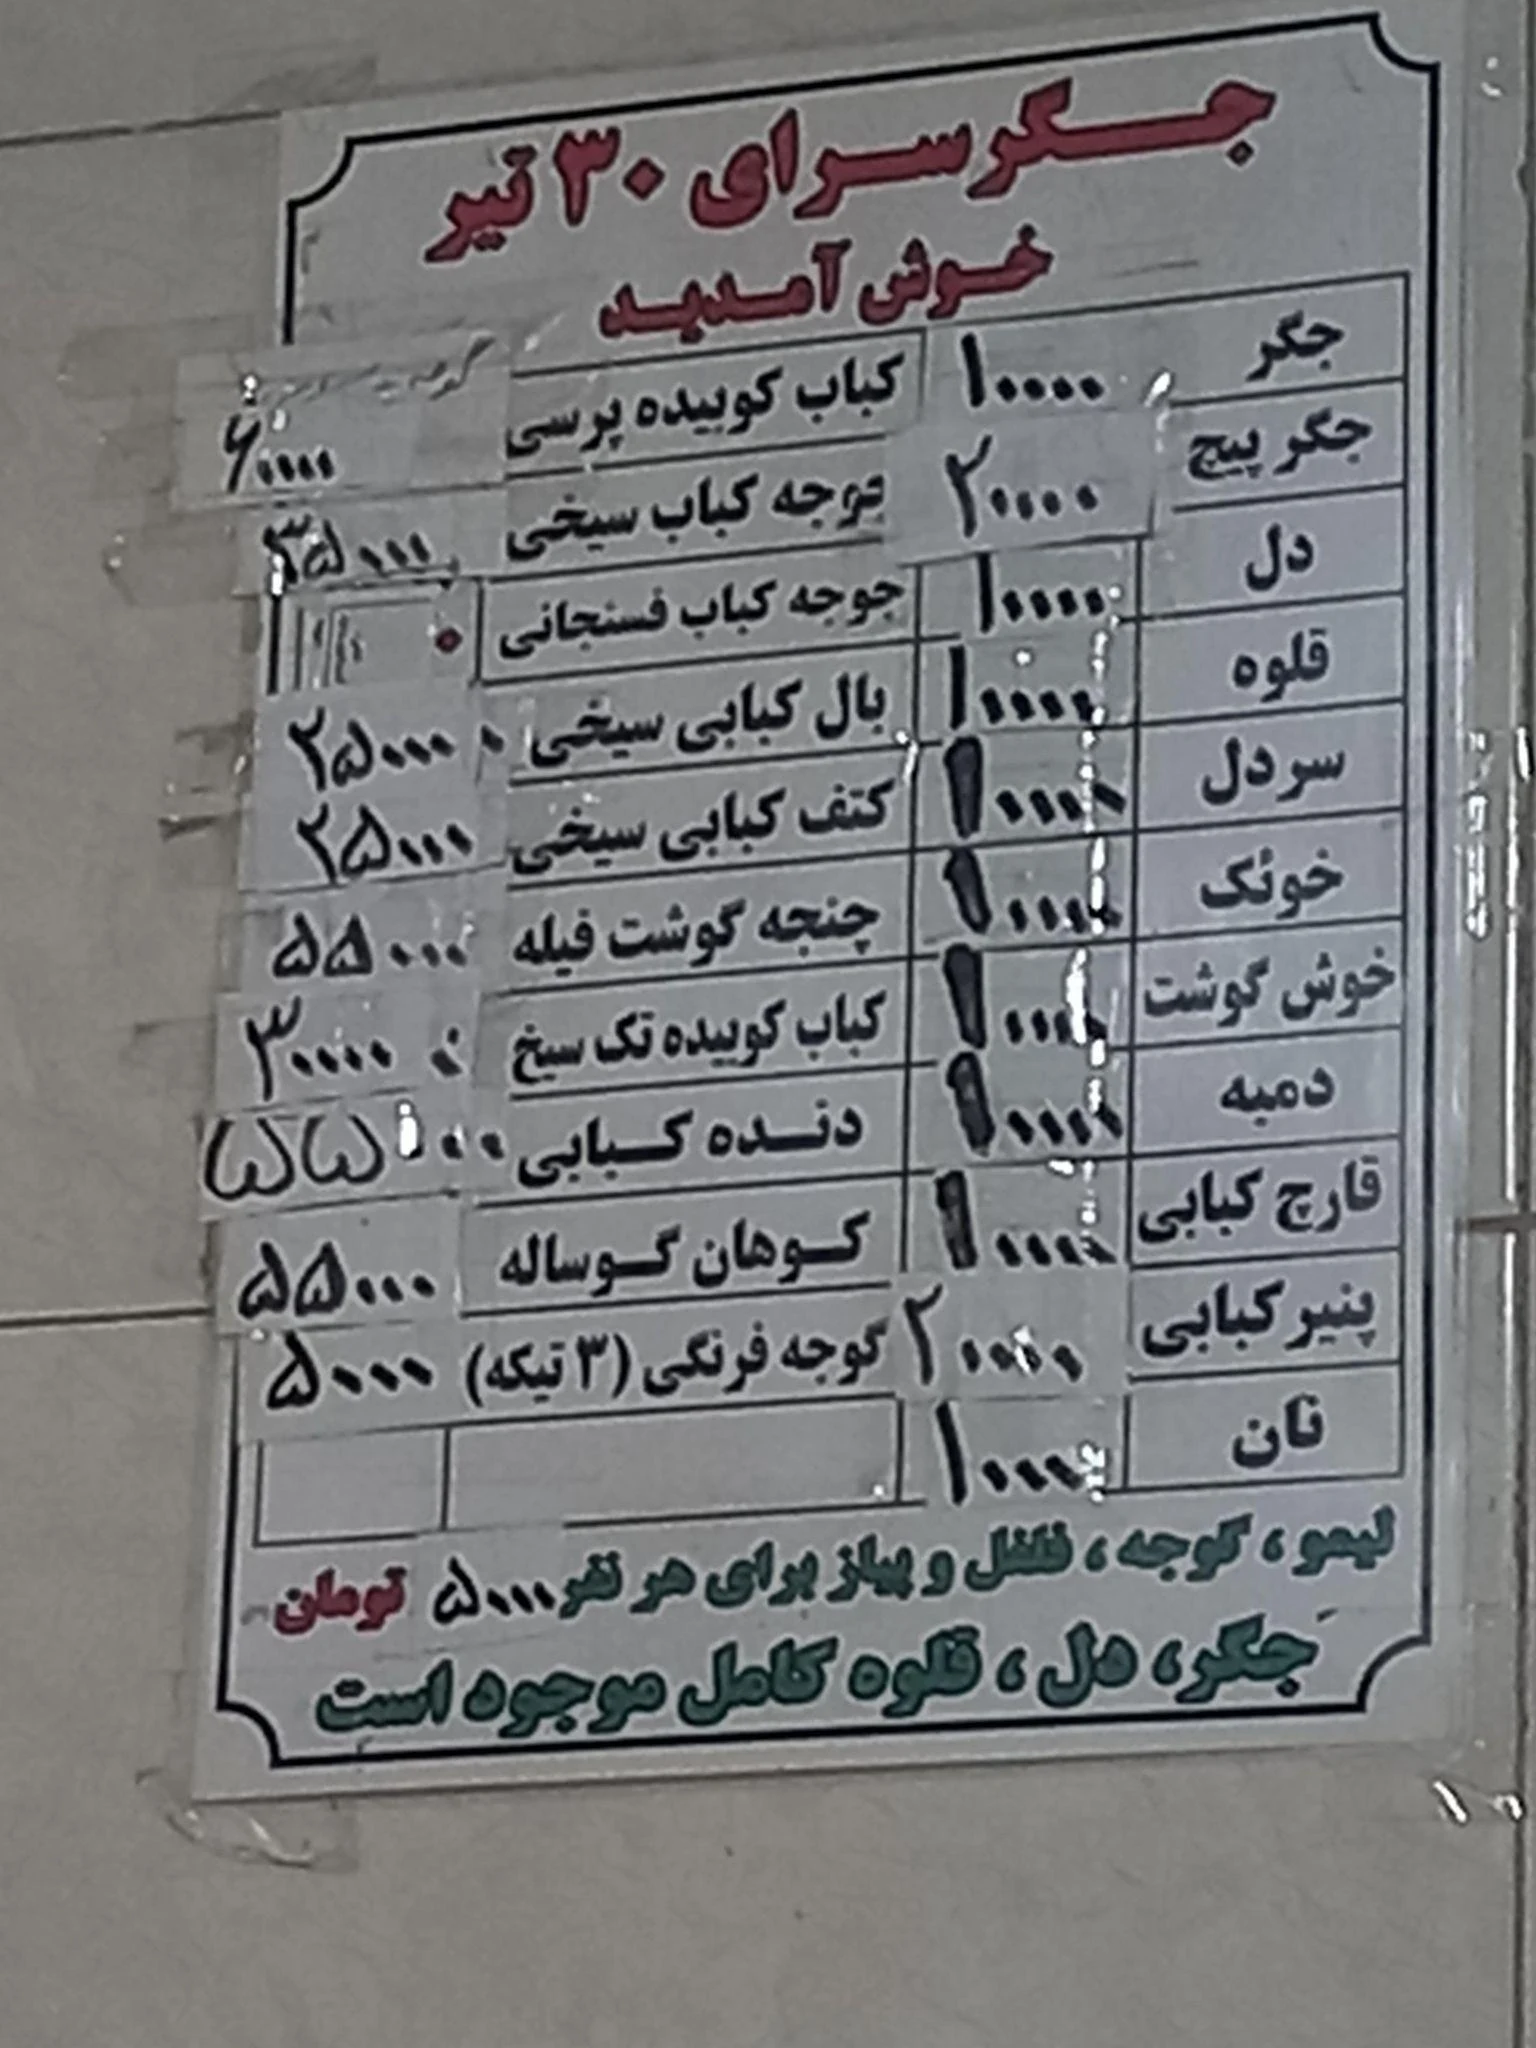 جگرسرای ۳۰ تیر
خوش آمدید
جگر ۱۰۰۰۰ کباب کوبیده پرسی ۶۰۰۰۰
جگر پیچ ۲۰۰۰۰ جوجه کباب سیخی ۳۵۰۰۰
دل ۱۰۰۰۰ جوجه کباب فسنجانی
قلوه ۱۰۰۰۰ بال کبابی سیخی ۲۵۰۰۰
سردل ۱۰۰۰۰ کتف کبابی سیخی ۲۵۰۰۰
خوئک ۱۰۰۰۰ چنجه گوشت فیله ۵۵۰۰۰
خوش گوشت ۱۰۰۰۰ کباب کوبیده تک سیخ ۳۰۰۰۰
دمبه ۱۰۰۰۰ دنده کبابی ۵۵۰۰۰
قارچ کبابی ۱۰۰۰۰ کوهان گوساله ۵۵۰۰۰
پنیر کبابی ۲۰۰۰۰ گوجه فرنگی (۳ تیکه) ۵۰۰۰
نان ۱۰۰۰
لیمو ، گوجه ، فلفل و پیاز برای هر نفر ۵۰۰۰ تومان
جگر، دل ، قلوه کامل موجود است